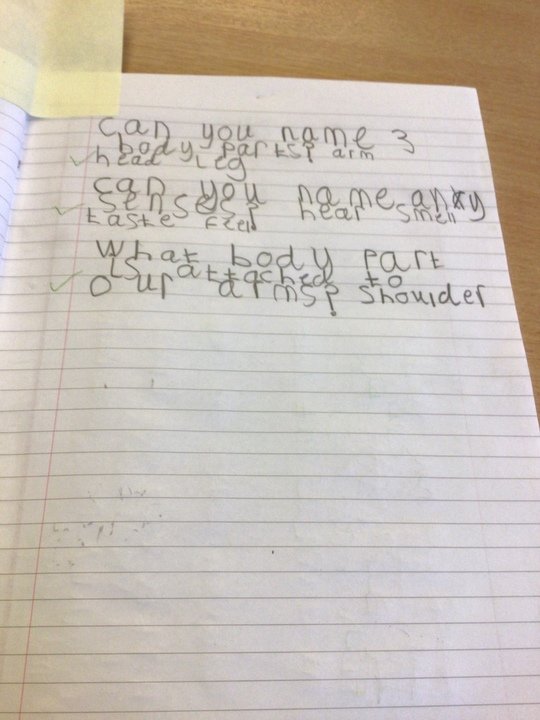 can you name 3
body parts? arm
head leg
can you name any
senses? hear smell
taste feel
What body part
is attached to
our arms? shoulder